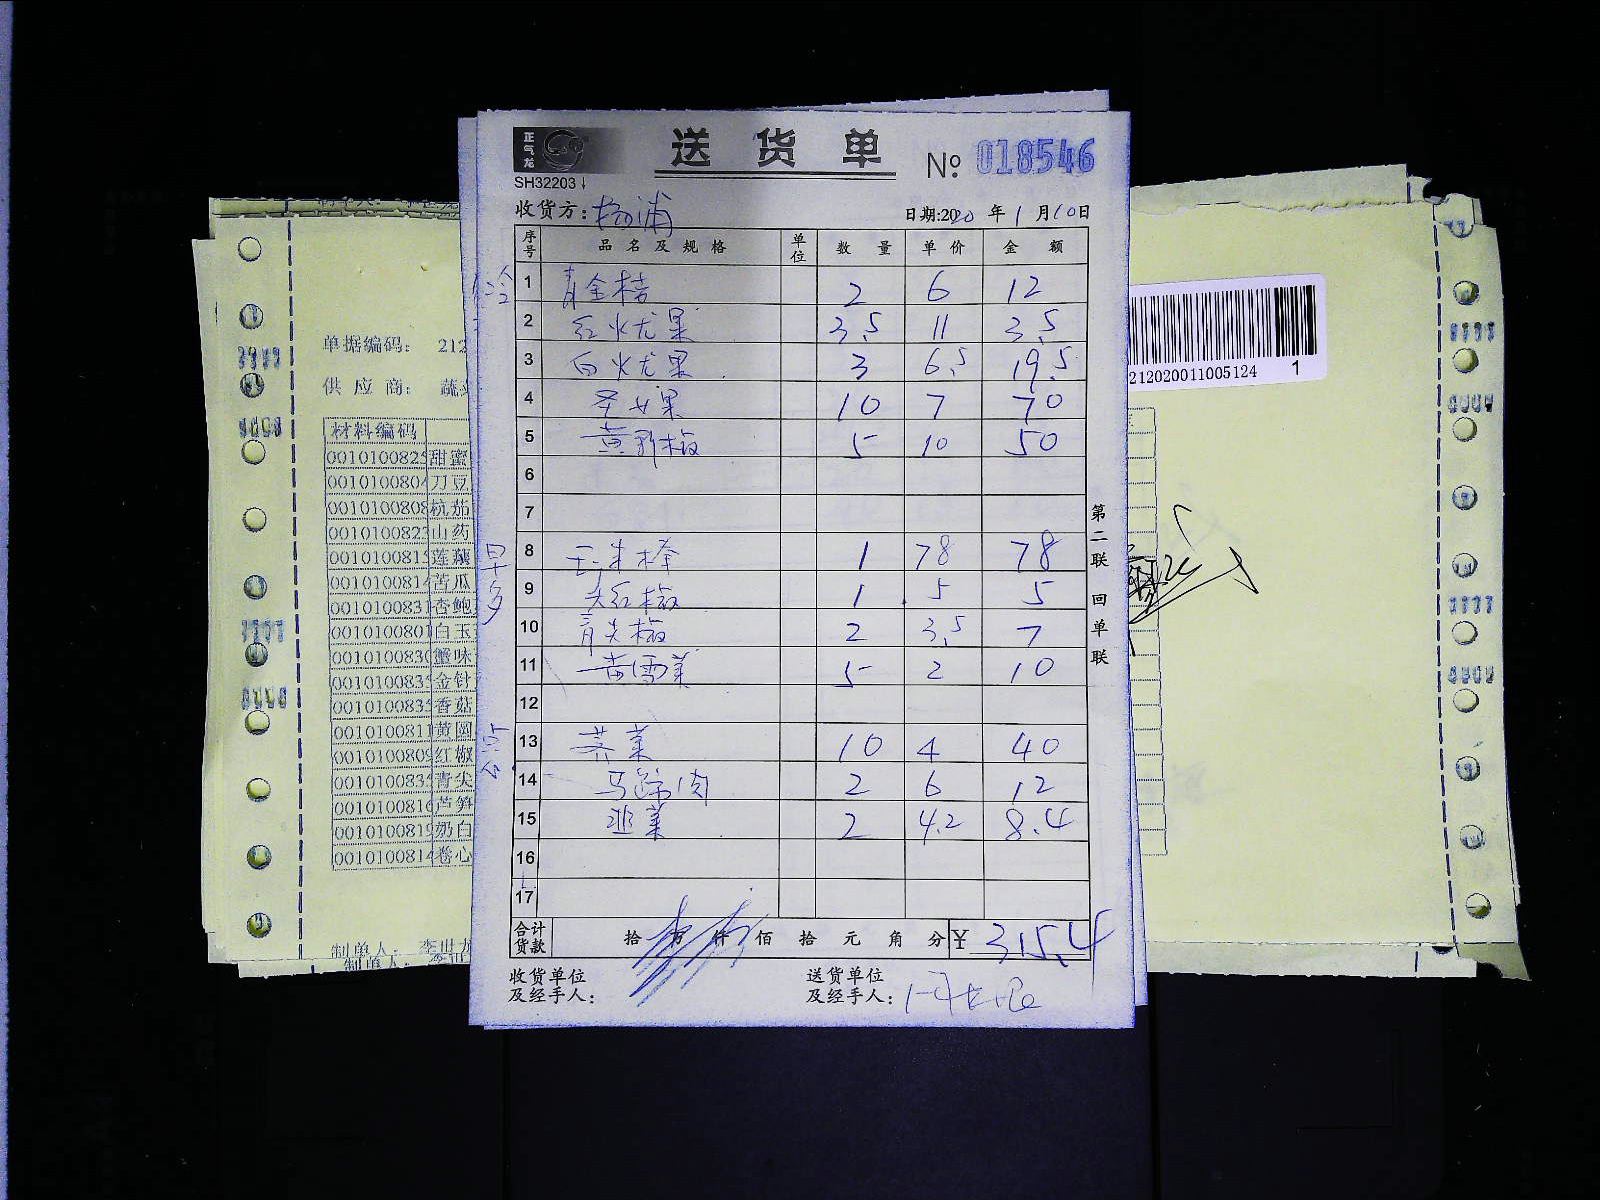 正气龙
送货单
№ 018546
SH32203
收货方: 杨浦
日期:2020年1月10日
序号 品名及规格 单位 数量 单价 金额
冷 1 青金桔 2 6 12
2 红火尤果 3.5 11 3.5
3 白火尤果 3 6.5 19.5
4 圣女果 10 7 70
5 黄彩椒 5 10 50
6
7
8 1 78 78
9 尖红椒 1 5 5
10 青尖椒 2 3.5 7
11 黄雪菜 5 2 10
12
13 荠菜 10 4 40
14 马蹄肉 2 6 12
15 韭菜 2 4.2 8.4
16
17
合计货款 拾 万 仟 佰 拾 元 角 分 ¥ 315.4
收货单位及经手人:
送货单位及经手人:
第二联 回单联
早
点
单据编码: 212
供应商: 蔬
材料编码
0010100825 甜蜜
001010080 刀豆
001010080 杭茄
001010082 山药
001010081 莲藕
001010081 苦瓜
001010083 杏鲍
001010080 白玉
001010083 蟹味
001010083 金针
001010083 香菇
001010081 黄圆
001010080 红椒
001010083 青尖
001010081 芦笋
001010081 奶白
001010081 卷心
制单人: 李世龙
制单人: 李世
212020011005124 1